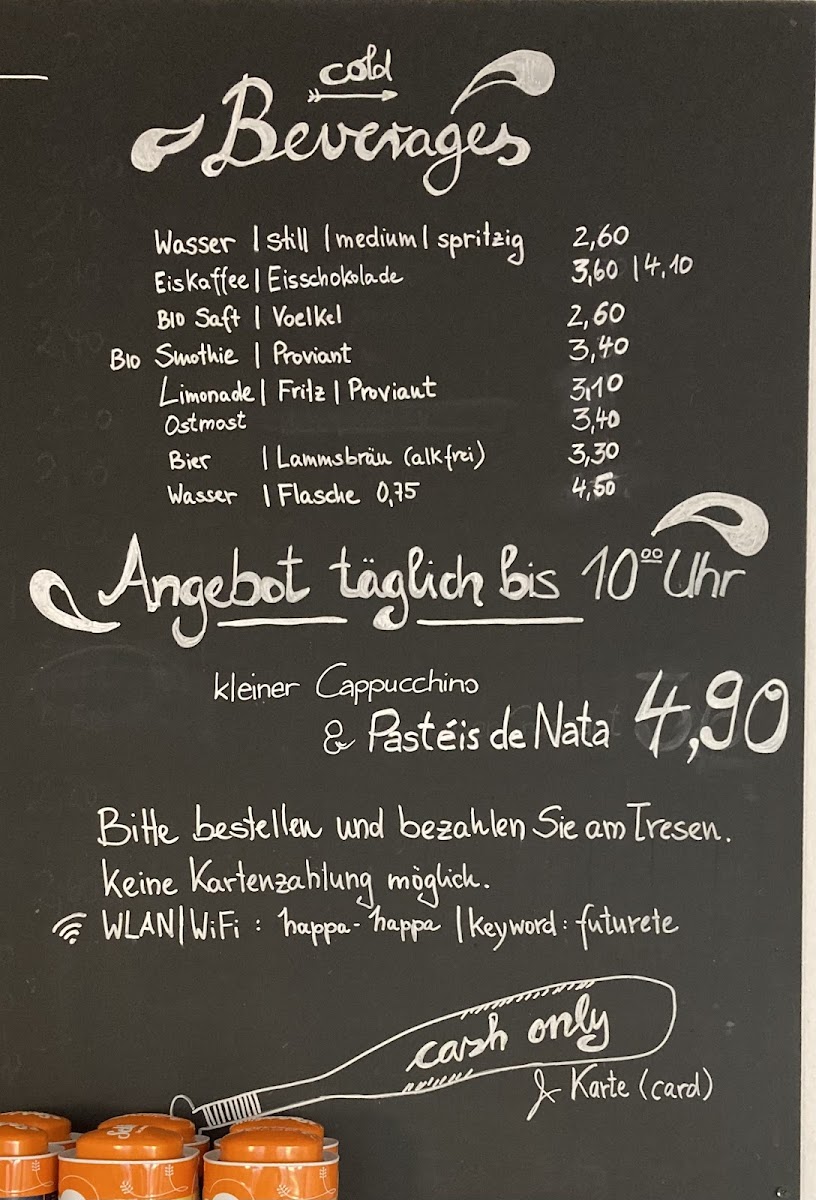 cold
Beverages
Wasser | still | medium | spritzig 2,60
Eiskaffee | Eisschokolade 3,60 | 4,10
BIO Saft | Voelkel 2,60
BIO Smothie | Proviant 3,40
Limonade | Fritz | Proviant 3,10
Ostmost 3,40
Bier | Lammsbräu (alkfrei) 3,30
Wasser | Flasche 0,75 4,50
Angebot täglich bis 10⁰⁰ Uhr
kleiner Cappucchino
& Pastéis de Nata 4,90
Bitte bestellen und bezahlen Sie am Tresen.
Keine Kartenzahlung möglich.
WLAN|WiFi : happa-happa | keyword : futurete
cash only
& Karte (card)